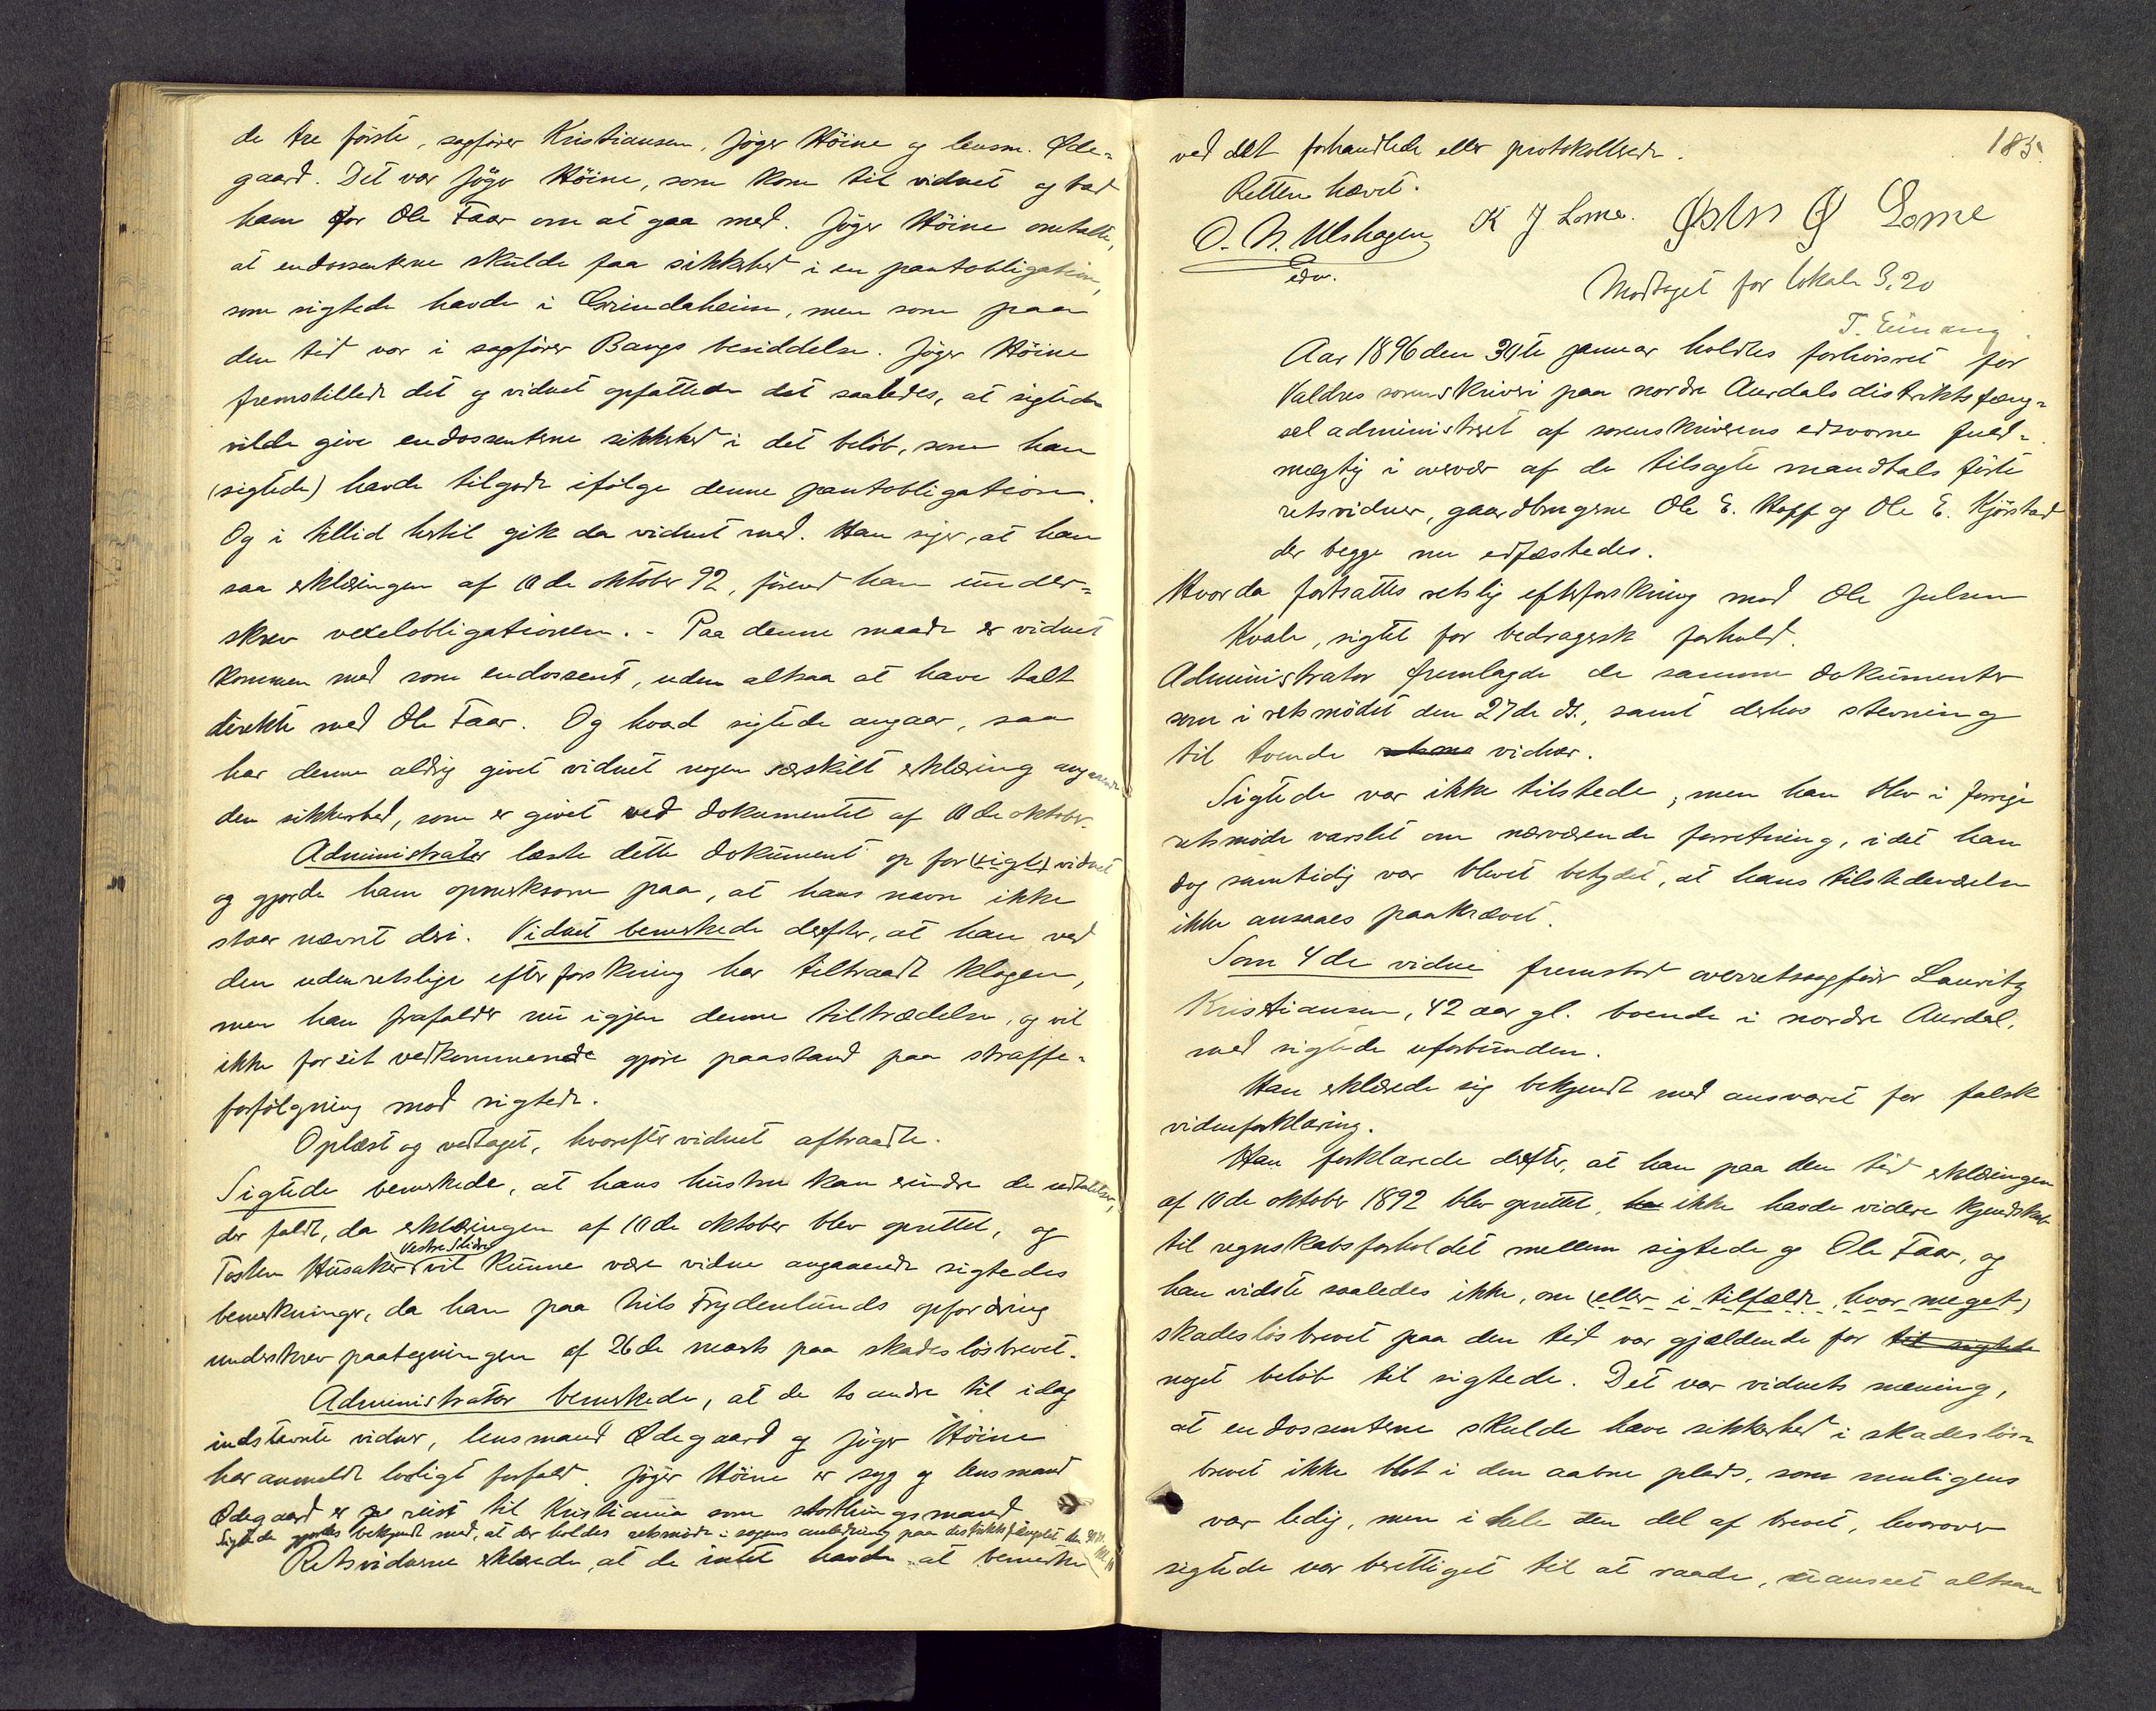 de tre første, sagfører Kristiansen, Jøger Høine og lensm. Øde-
gaard. Det var Jøger Höine, som kom til vidnet og bad
ham for Ole Faar om at gaa med. Jøger Höine omtalte,
at endossenterne skulde faa sikkerhed i en pantobligation,
som sigtede havde i Grindaheim, men som paa
den tid var i sagfører Bangs besiddelse. Jøger Höine
fremstillede det og vidnet opfattede det saaledes, at sigtede
vilde give endossenterne sikkerhed i det beløb, som han
(sigtede) havde tilgode ifølge denne pantobligation.
Og i tillid hertil gik da vidnet med. Han siger, at han
saa erklæringen af 10de oktober 92, førend han under-
skrev vexelobligationen. - Paa denne maade er vidnet
kommen med som endossent, uden altsaa at have talt
direkte med Ole Faar. Og hvad sigtede angaar, saa
har denne aldrig givet vidnet nogen særskilt erklæring angaaende
den sikkerhed, som er givet ved dokumentet af 10de oktober.
Administrator læste dette dokument op for (sigt) vidnet
og gjorde ham opmerksom paa, at hans navn ikke
staar nævnt deri. Vidnet bemerkede derefter, at han ved
den udenretslige efterforskning har tiltraadt klagen,
men han frafalder nu igjen denne tiltrædelse, og vil
ikke for sit vedkommende gjøre paastand paa straffe-
forfølgning mod sigtede.
Oplæst og vedtaget, hvorefter vidnet aftraadte.
Sigtede bemerkede, at hans hustru kan erindre de udtalelser,
der faldt, da erklæringen af 10de oktober blev oprettet, og
Vestre Slidre
Tosten Husaker vil kunne være vidne angaaende sigtedes
bemerkninger, da han paa Nils Frydenlunds opfordring
underskrev paategningen af 26de marts paa skadesløsbrevet.
Administrator bemerkede, at de to andre til idag
indstevnte vidner, lensmand Ødegaard og Jøger Höine
har anmeldt lovligt forfald. Jøger Höine er syg og lensmand
Ødegaard er reist til Kristiania som storthingsmand
Sigtede gjordes bekjendt med, at der holdes retsmøde i sagens anledning paa distriktsfængslet den 30
Retsvidnerne erklærede, at de intet havde at bemerke
185.
ved det forhandlede eller protokollerede.
Retten hævet.
O. N. Ulshagen K J Lome. Østen Ø Lome
edsv.
Modtaget for lokale 3,20
T. Einang
Aar 1896 den 30te januar holdtes forhørsret for
Valdres sorenskriveri paa nordre Aurdals distriktsfæng-
sel administreret af sorenskriverens edsvorne fuld-
mægtig i overvær af de tilsagte mandtalsførte
retsvidner, gaardbrugerne Ole E. Hoff og Ole E. Kjørstad
der begge nu edfæstedes.
Hvorda fortsattes retslig efterforskning mod Ole Julsen
Kvale, sigtet for bedragersk forhold.
Administrator fremlagde de samme dokumenter
som i retsmødet den 27de ds., samt derhos stevning
til tvende vidner.
Sigtede var ikke tilstede, men han blev i forrige
retsmøde varslet om nærværende forretning, idet han
dog samtidig var blevet betydet, at hans tilstedeværelse
ikke ansaaes paakrævet.
Som 4de vidne fremstod overretssagfører Lauritz
Kristiansen, 42 aar gl. boende i nordre Aurdal,
med sigtede uforbunden.
Han erklærede sig bekjendt med ansvaret for falsk
vidneforklaring.
Han forklarede derefter, at han paa den tid erklæringen
af 10de oktober 1892 blev oprettet, ha ikke havde videre kjendskab
til regnskabsforholdet mellem sigtede og Ole Faar, og
han vidste saaledes ikke, om (eller i tilfælde hvor meget)
skadesløsbrevet paa den tid var gjældende for til sigtede
noget beløb til sigtede. Det var vidnets mening,
at endossenterne skulde have sikkerhed i skadesløs-
brevet ikke blot i den aabne plads, som muligens
var ledig, men i hele den del af brevet, hvorover
sigtede var berettiget til at raade, uanseet altsaa